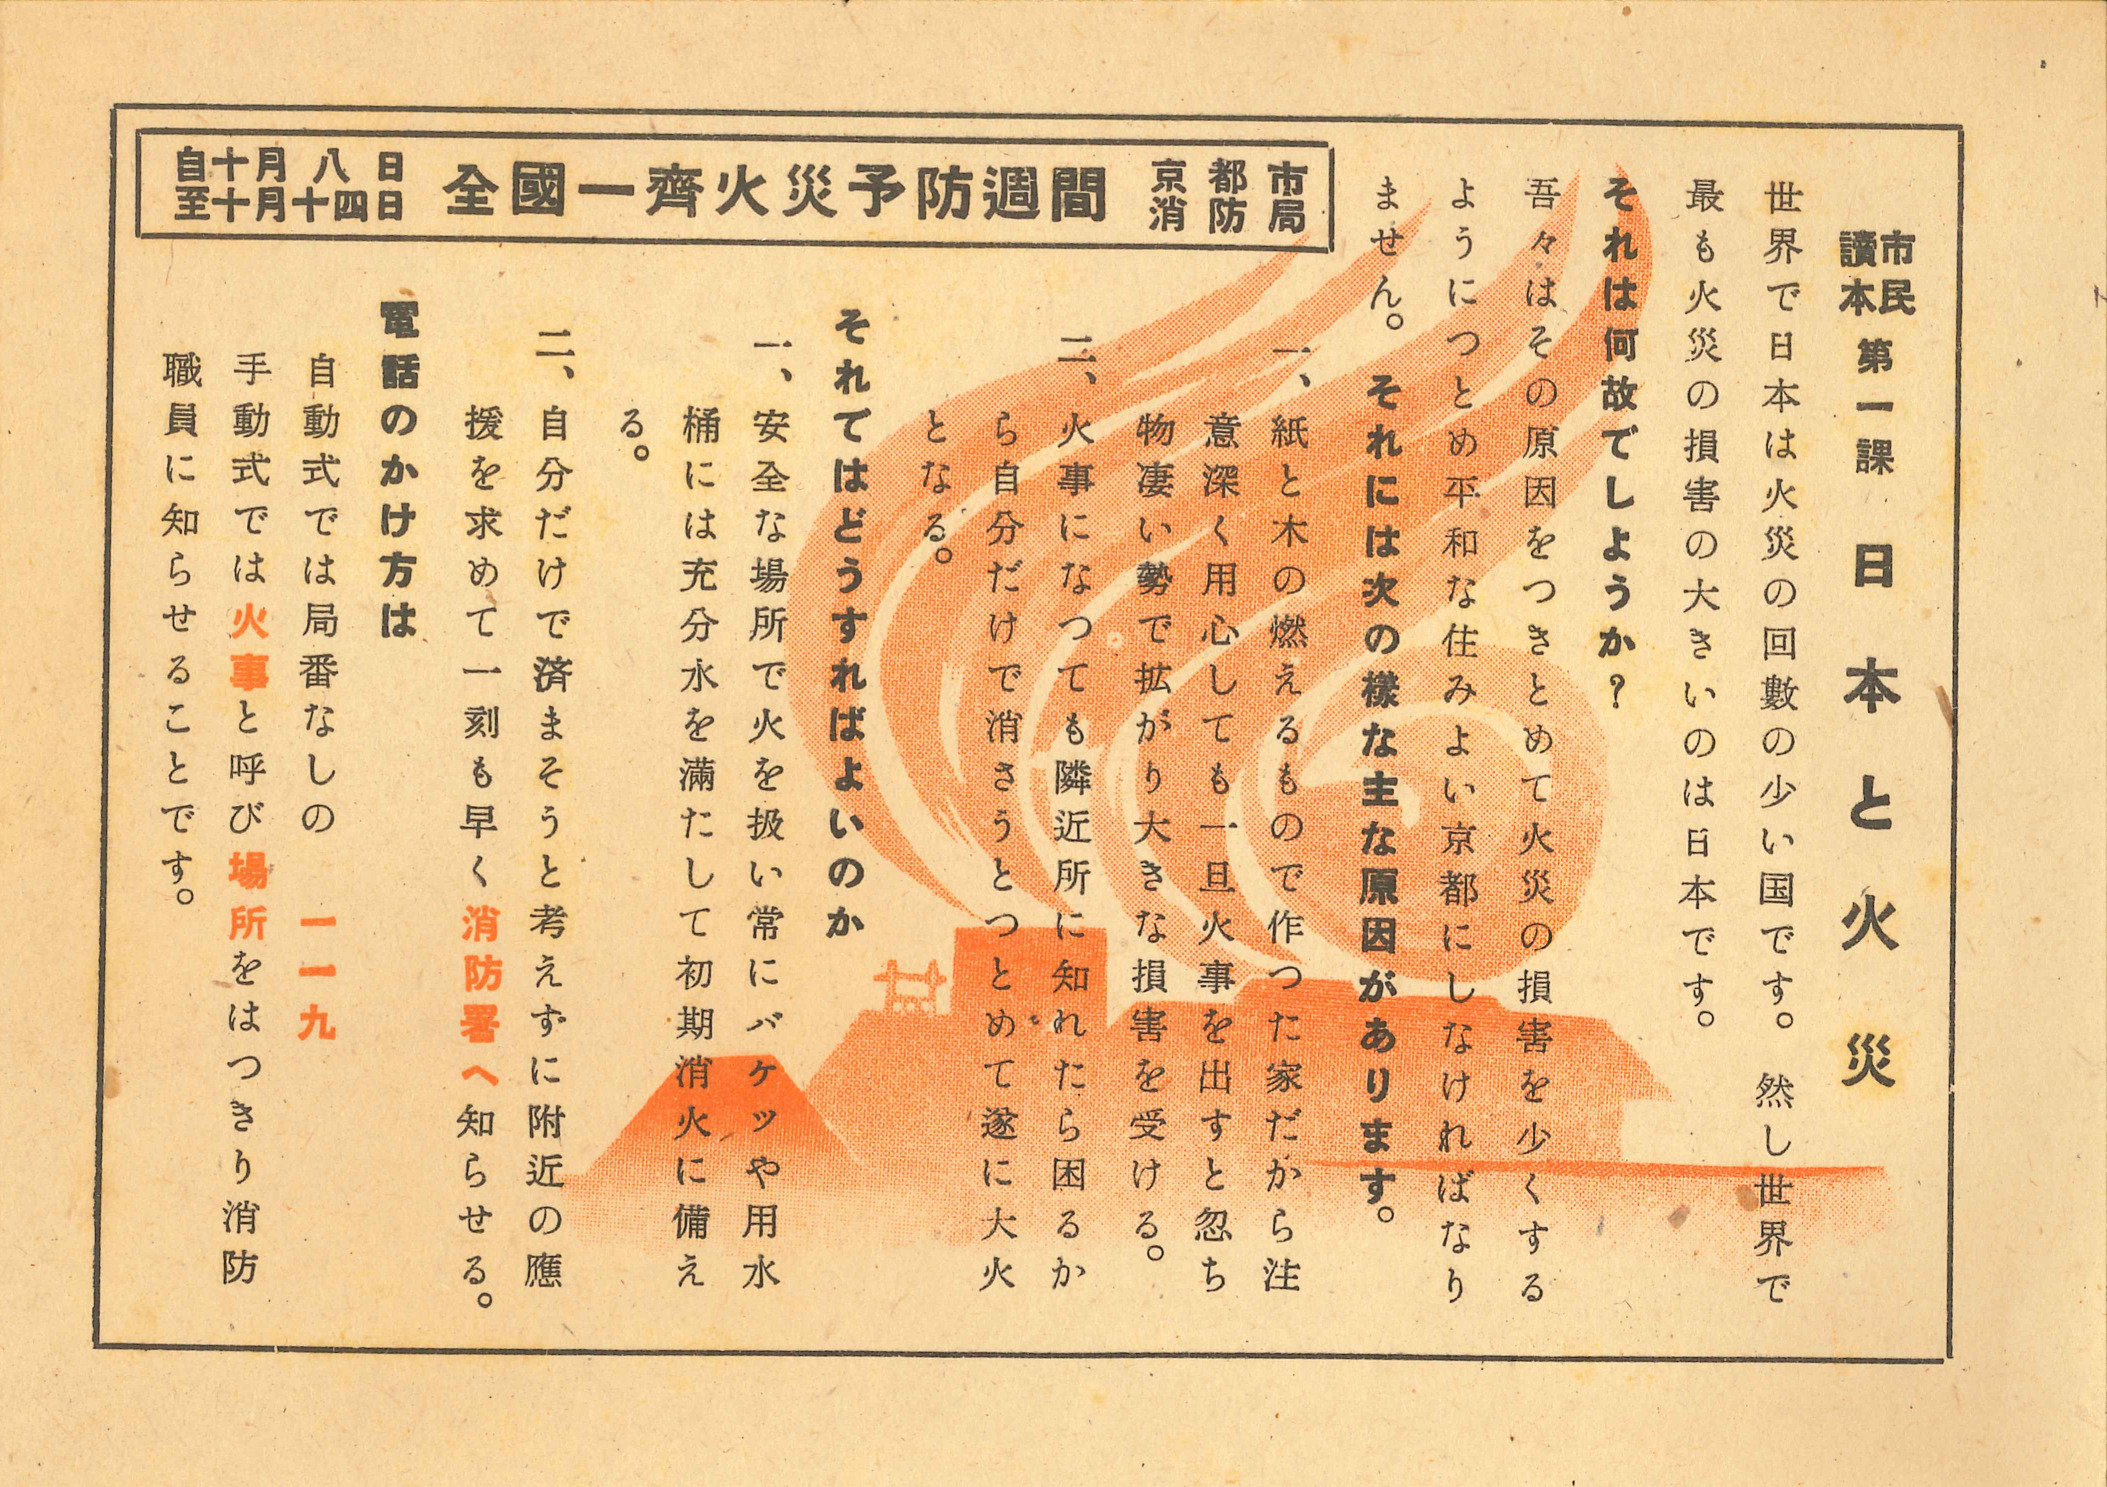 市民讀本 第一課 日本と火災
世界で日本は火災の回數の少い国です。然し世界で
最も火災の損害の大きいのは日本です。
それは何故でしようか？
吾々はその原因をつきとめて火災の損害を少くする
ようにつとめ平和な住みよい京都にしなければなり
ません。 それには次の様な主な原因があります。
一、紙と木の燃えるもので作つた家だから注
意深く用心しても一旦火事を出すと忽ち
物凄い勢で拡がり大きな損害を受ける。
二、火事になつても隣近所に知れたら困るか
ら自分だけで消さうとつとめて遂に大火
となる。
それではどうすればよいのか
一、安全な場所で火を扱い常にバケツや用水
桶には充分水を満たして初期消火に備え
る。
二、自分だけで済まそうと考えずに附近の應
援を求めて一刻も早く消防署へ知らせる。
電話のかけ方は
自動式では局番なしの 一一九
手動式では火事と呼び場所をはつきり消防
職員に知らせることです。
自十月八日
至十月十四日
全國一齊火災予防週間
京都市
消防局